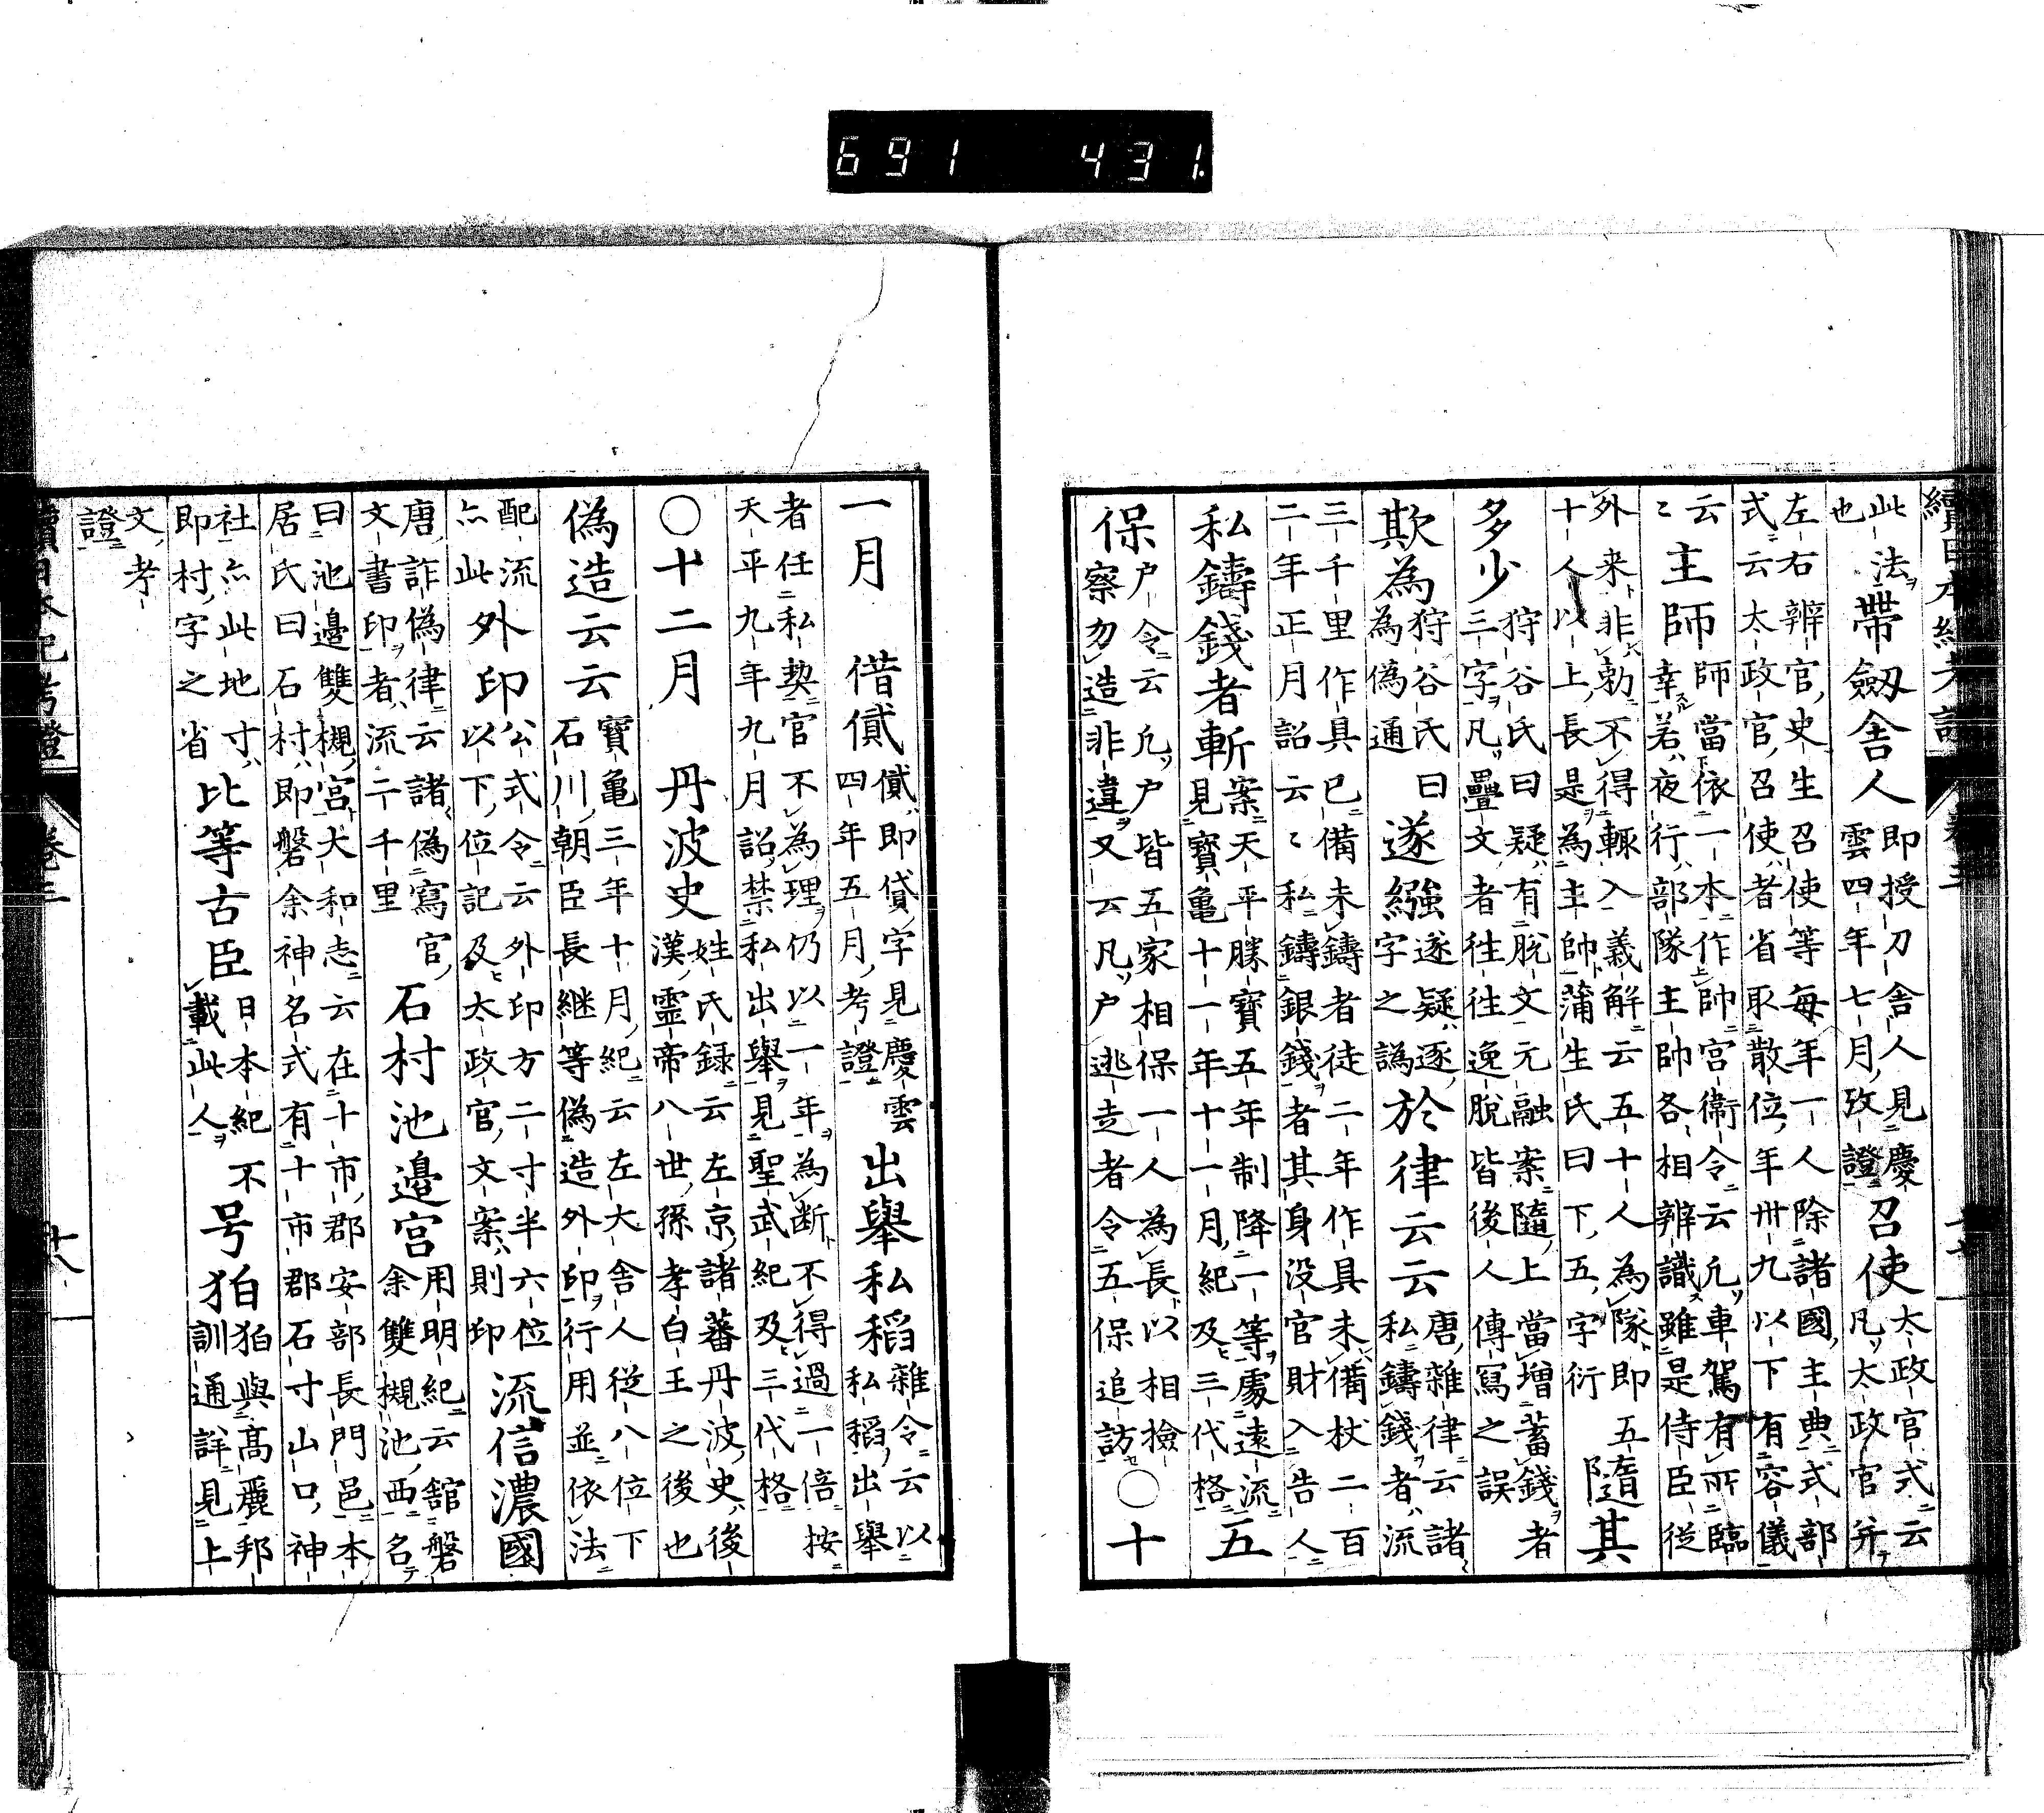 691 431.
續日本紀考證 卷三 十七
此法
也
帶劔舎人
即授刀舎人見慶
雲四年七月攷證
召使
太政官式云
凡太政官并
左右辨官史生召使等每年一人除諸國主典式部
式云太政官召使者省取散位年卅九以下有容儀
云
〻
主師
師當依一本作帥宮衛令云凢車駕有所臨
幸若夜行部隊主帥各相辨識雖是侍臣従
外来非勅不得輙入義解云五十人為隊即五
十人以上長是為主帥蒲生氏曰下五字衍
隨其
多少
狩谷氏曰疑有脱文元融案隨上當増蓄錢者
三字凡疊文者往往逸脱皆後人傳寫之誤
欺為
狩谷氏曰
為偽通
遂繦
遂疑逐
字之譌
於律云云
唐雜律云諸
私鑄錢者流
三千里作具已備未鑄者徒二年作具未備杖二百
二年正月詔云〻私鑄銀錢者其身没官財入告人
私鑄錢者斬
案天平勝寶五年制降一等處遠流
見寶亀十一年十一月紀及三代格
五
保
户令云凢户皆五家相保一人為長以相檢
察勿造非違又云凡户逃走者令五保追訪
〇十
一月
借貣
貣即貸字見慶雲
四年五月考證
出舉私稻
雜令云以
私稻出舉
者任私契官不為理仍以一年為断不得過一倍按
天平九年九月詔禁私出舉見聖武紀及三代格
〇十二月
丹波史
姓氏録云左京諸蕃丹波史後
漢靈帝八世孫孝白王之後也
偽造云云
寶亀三年十月紀云左大舎人従八位下
石川朝臣長継等偽造外印行用並依法
配流
亦此
外印
公式令云外印方二寸半六位
以下位記及太政官文案則印
流信濃國
唐詐偽律云諸偽寫官
文書印者流二千里
石村池邉宮
用明紀云舘磐
余雙槻池西名
曰池邉雙槻宮大和志云在十市郡安部長門邑本
居氏曰石村即磐余神名式有十市郡石寸山口神
社亦此地寸
即村字之省
比等古臣
日本紀不
載此人
号狛
狛與髙麗邦
訓通詳見上
文考
證
續日本紀考證 卷三 十八